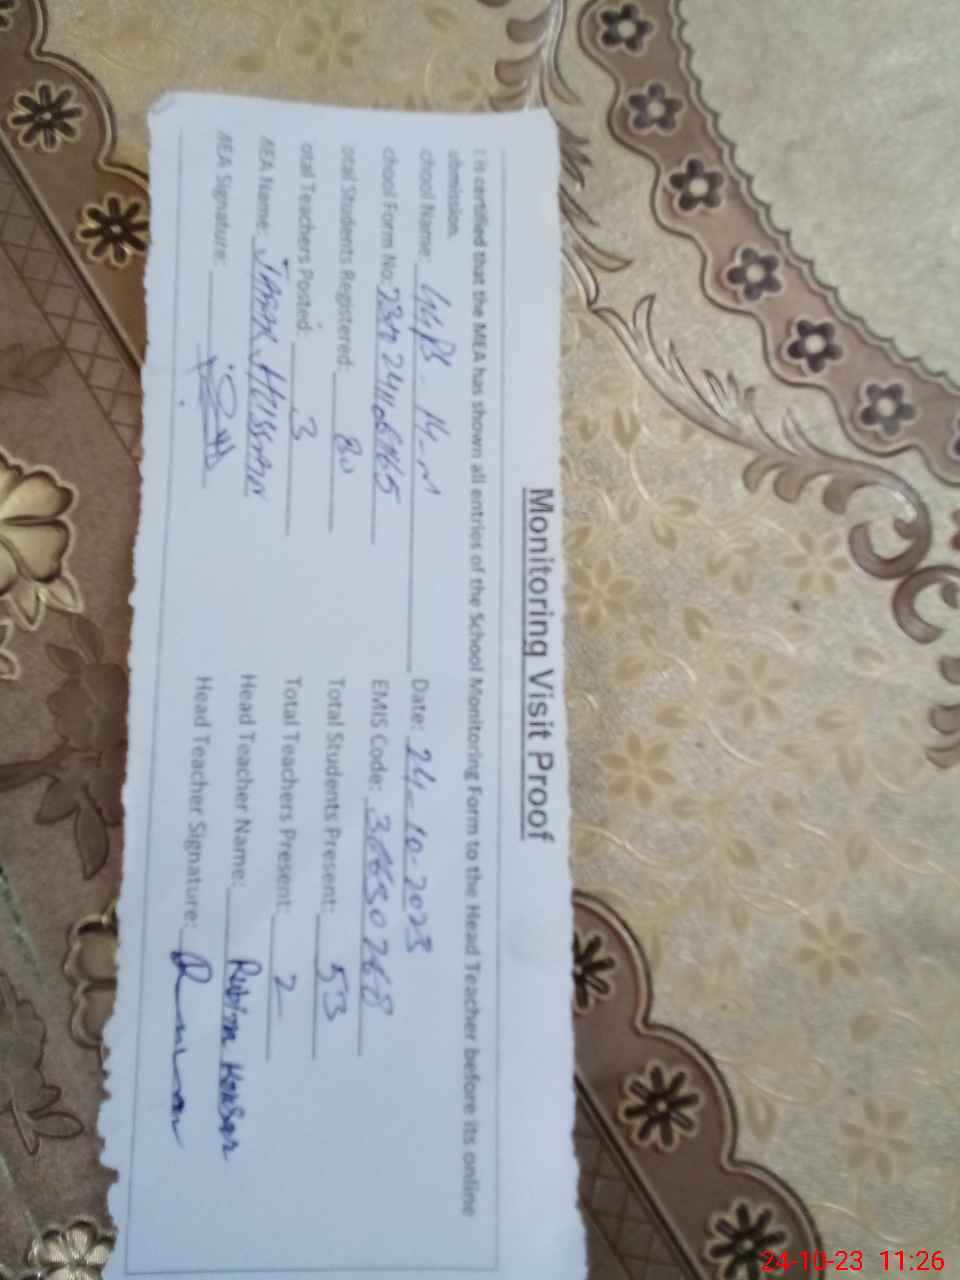 Monitoring Visit Proof
t is certified that the MEA has shown all entries of the School Monitoring Form to the Head Teacher before its online
ubmission.
chool Name: Date: 24-10-2023
chool Form No: EMIS Code:
otal Students Registered: 80 Total Students Present: 53
otal Teachers Posted: 3 Total Teachers Present: 2
MEA Name: HUSSAIN Head Teacher Name:
MEA Signature: Head Teacher Signature:
24-10-23 11:26